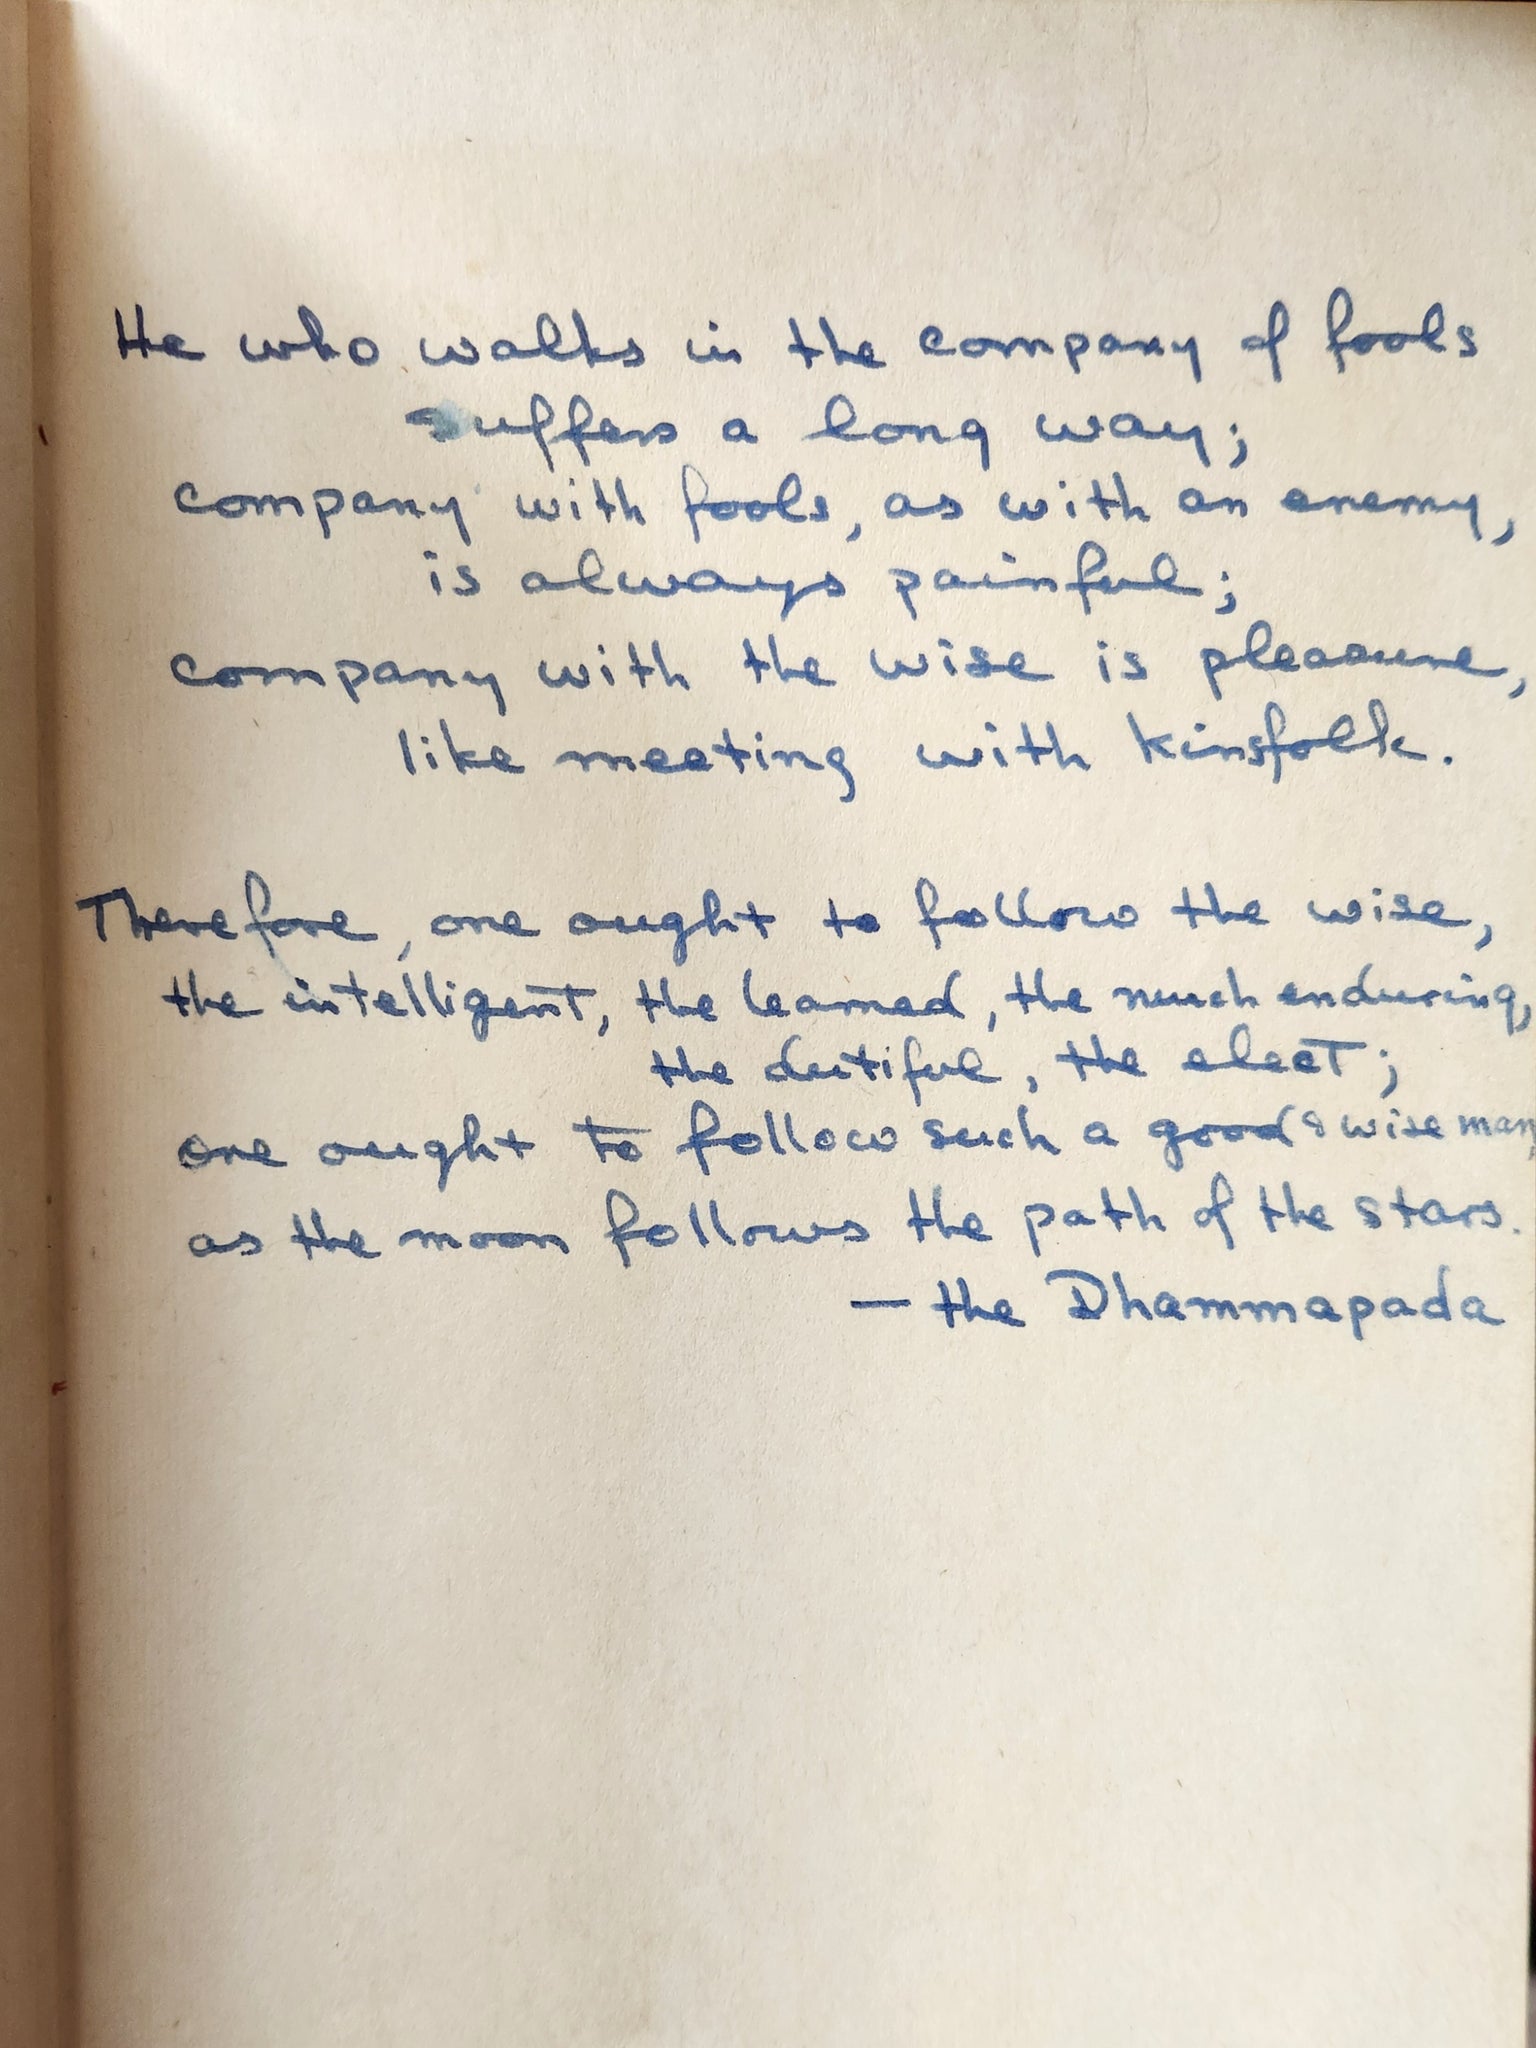 He who walks in the company of fools
suffers a long way;
company with fools, as with an enemy,
is always painful;
company with the wise is pleasure,
like meeting with kinsfolk.
Therefore, one ought to follow the wise,
the intelligent, the learned, the much enduring,
the dutiful, the elect;
one ought to follow such a good & wise man,
as the moon follows the path of the stars.
— the Dhammapada